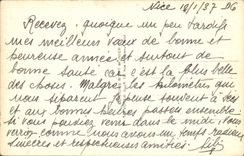 Nice 18/1/37 N6
Recevez, quoique un peu tardifs
mes meilleurs vœux de bonne et
heureuse année et surtout de
bonne santé car c'est la plus belle
des choses. Malgré les kilomètres qui
nous séparent je pense souvent à vous
et aux bonnes heures passées ensemble.
Si vous pouviez venir dans le midi vous
verriez comme nous avons un temps
sincères et respectueuses amitiés.